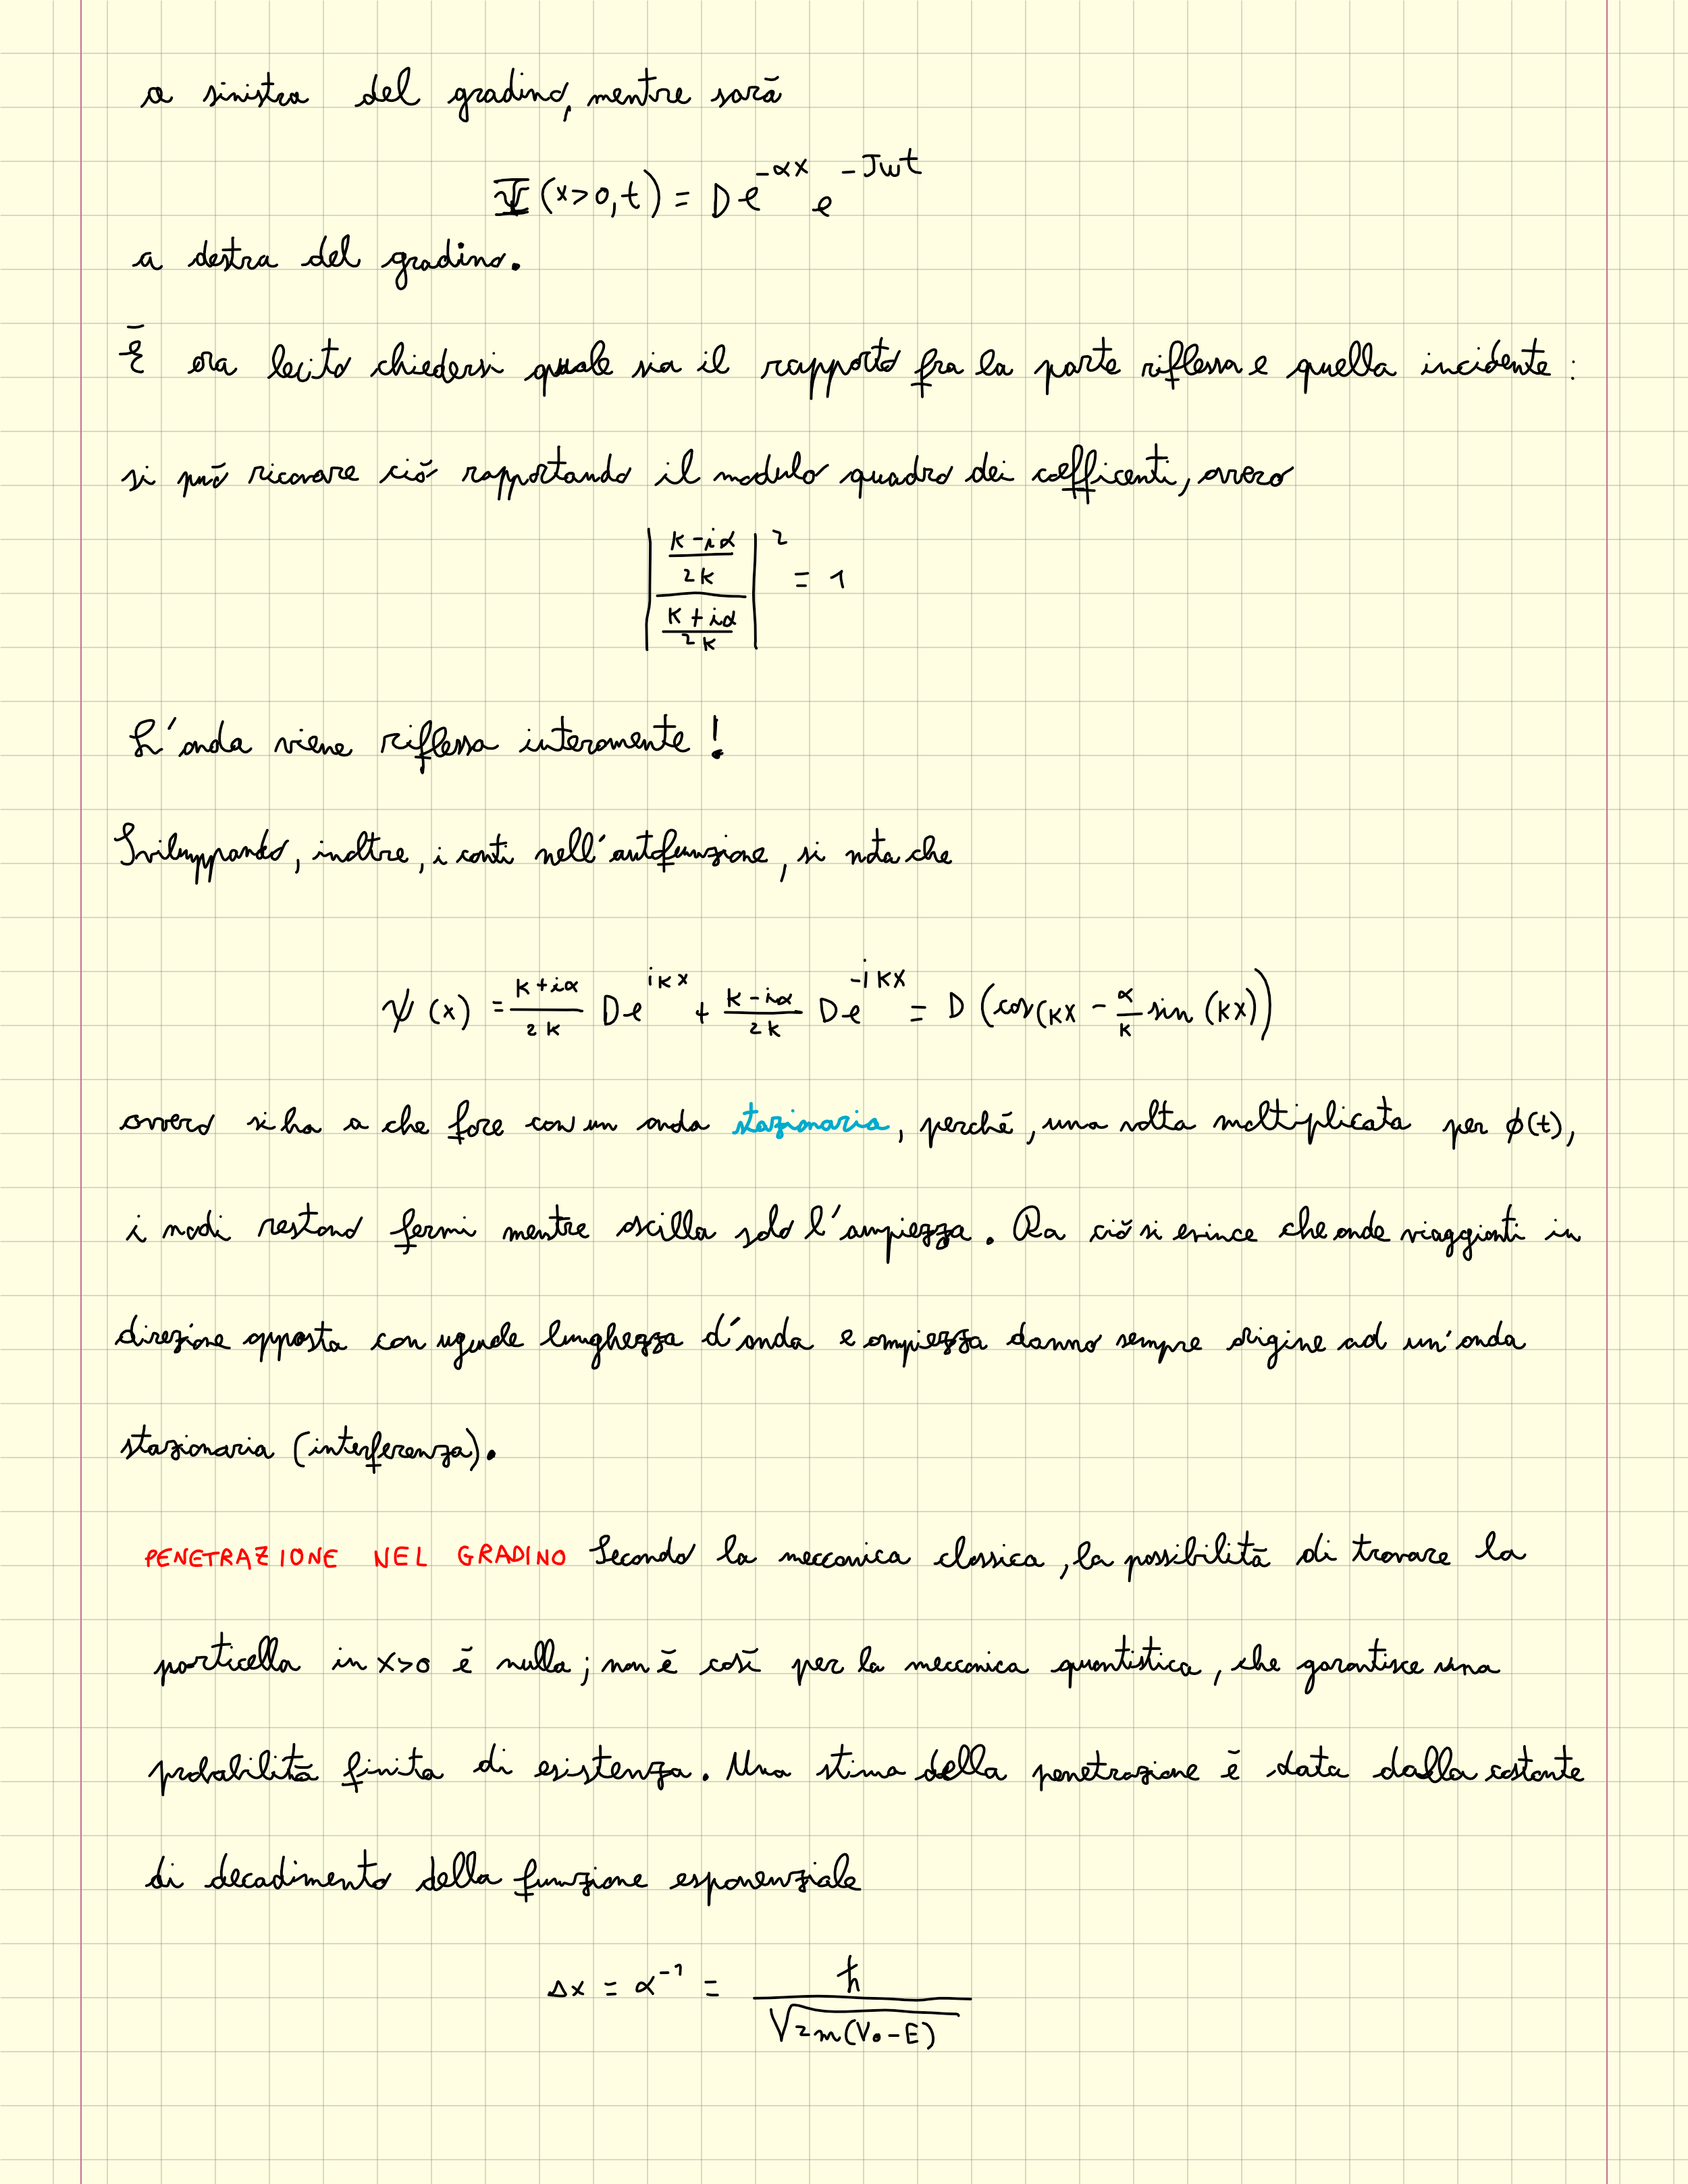 a sinistra del gradino, mentre sarà
Ψ(x>0,t) = De^{-αx} e^{-Jωt}
a destra del gradino.
È ora lecito chiedersi quale sia il rapporto fra la parte riflessa e quella incidente:
si può ricavare ciò rapportando il modulo quadro dei coefficenti, ovvero
|((k-iα)/2k)/((k+iα)/2k)|² = 1
L'onda viene riflessa interamente!
Sviluppando, inoltre, i conti nell'autofunzione, si nota che
ψ(x) = (k+iα)/2k De^{ikx} + (k-iα)/2k De^{-ikx} = D(cos(kx - α/k sin(kx))
ovvero si ha a che fare con un onda stazionaria, perché, una volta moltiplicata per ϕ(t),
i nodi restano fermi mentre oscilla solo l'ampiezza. Da ciò si evince che onde viaggianti in
direzione opposta con uguale lunghezza d'onda e ampiezza danno sempre origine ad un'onda
stazionaria (interferenza).
PENETRAZIONE NEL GRADINO Secondo la meccanica classica, la possibilità di trovare la
particella in x>0 è nulla; non è così per la meccanica quantistica, che garantisce una
probabilità finita di esistenza. Una stima della penetrazione è data dalla costante
di decadimento della funzione esponenziale
Δx = α⁻¹ = ħ/√(2m(V₀-E))